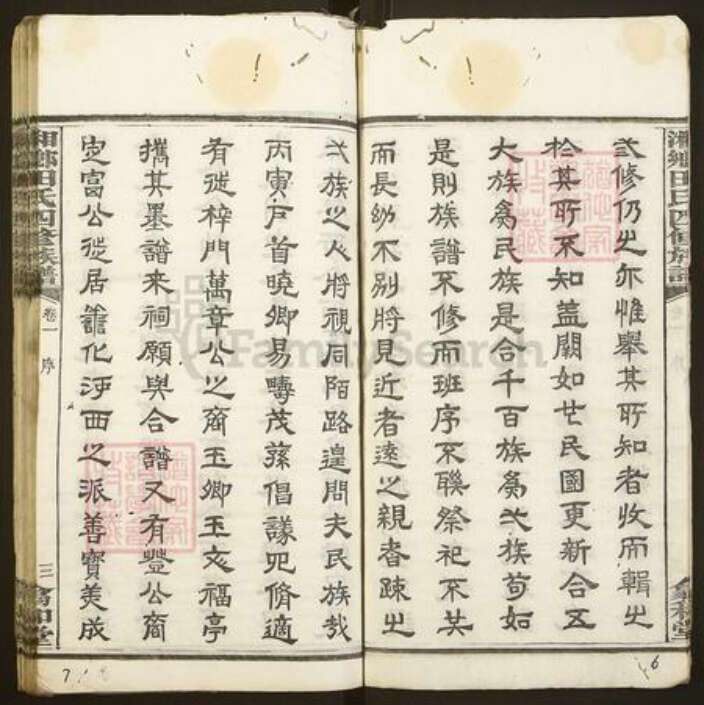 湘鄉田氏四修族譜
翕和堂
弍修仍之亦惟舉其所知者收而輯之
於其所不知蓋闕如也民國更新合五
大族為民族是合千百族為弌族苟如
是則族譜不修而班序不聯祭祀不共
而長幼不別將見近者遠之親者疎之
弌族之人將視同陌路遑問夫民族哉
丙寅戶首曉卿易疇茂蓀倡議四脩適
有從梓門萬章公之裔玉卿玉文福亭
攜其墨譜來祠願與合譜又有豐公裔
定富公徙居善化河西之派善寶美成
湘鄉田氏四修族譜
卷一
序
三
翕和堂
FamilySearch
6
7